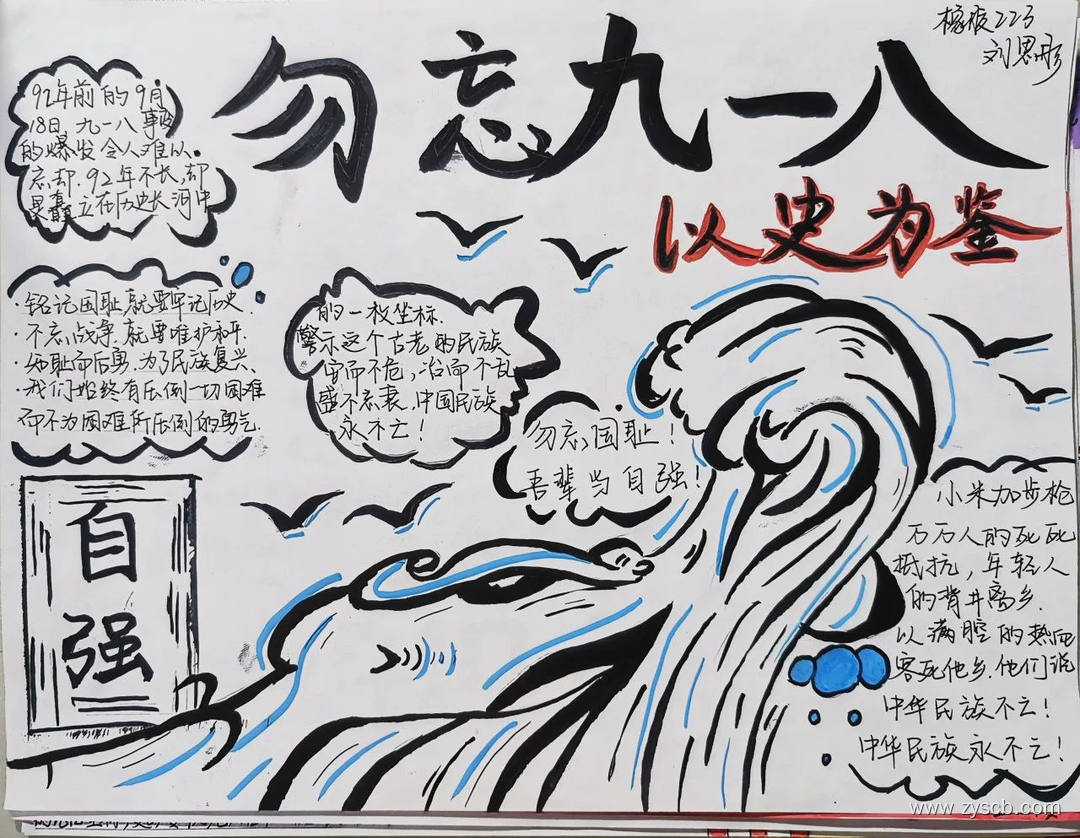 勿忘九一八
以史为鉴
橡胶223
刘思彤
92年前的9月
18日,九一八事变
的爆发令人难以
忘却.92年不长,却
是矗立在历史长河中
·铭记国耻,就要牢记历史.
·不忘战争.就要维护和平.
·知耻而后勇.为了民族复兴、
·我们始终有压倒一切困难
而不为困难所压倒的勇气.
的一枚坐标.
警示这个古老的民族
安而不危,治而不乱
盛不忘衰,中国民族
永不亡!
勿忘国耻!
吾辈当自强!
自
强
小米加步枪
万万人的死死
抵抗,年轻人
的背井离乡.
以满腔的热血
客死他乡.他们说
中华民族不亡!
中华民族永不亡!
www.zyscb.com